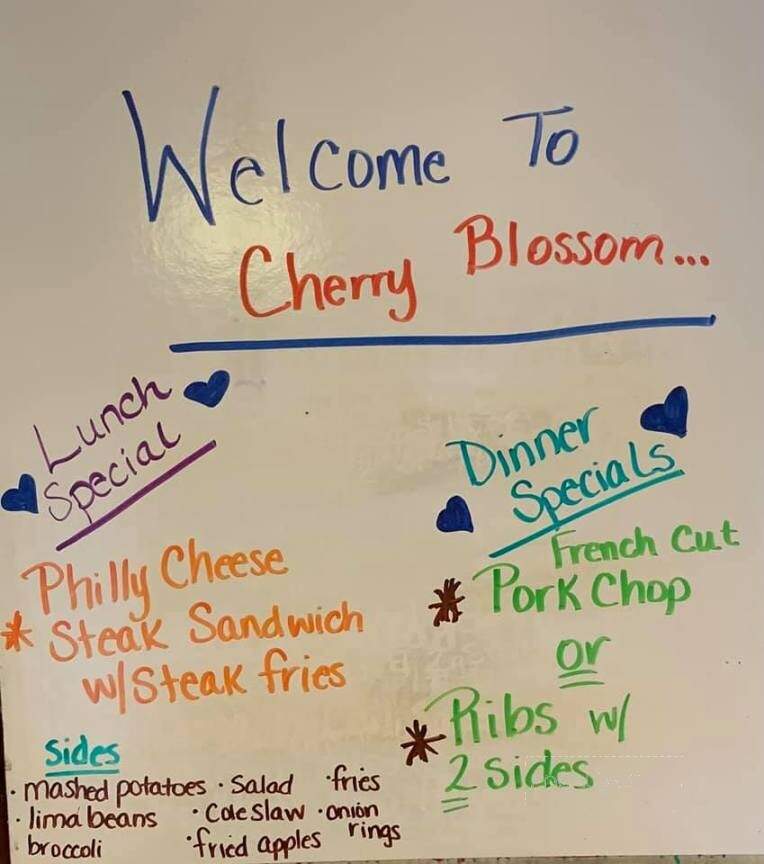 Welcome To
Cherry Blossom...
Lunch
Special
Philly Cheese
* Steak Sandwich
w/Steak fries
Dinner
Specials
French Cut
* Pork Chop
or
* Ribs w/
2 Sides
Sides
· mashed potatoes · Salad · fries
· lima beans · Coleslaw · onion
rings
broccoli · fried apples